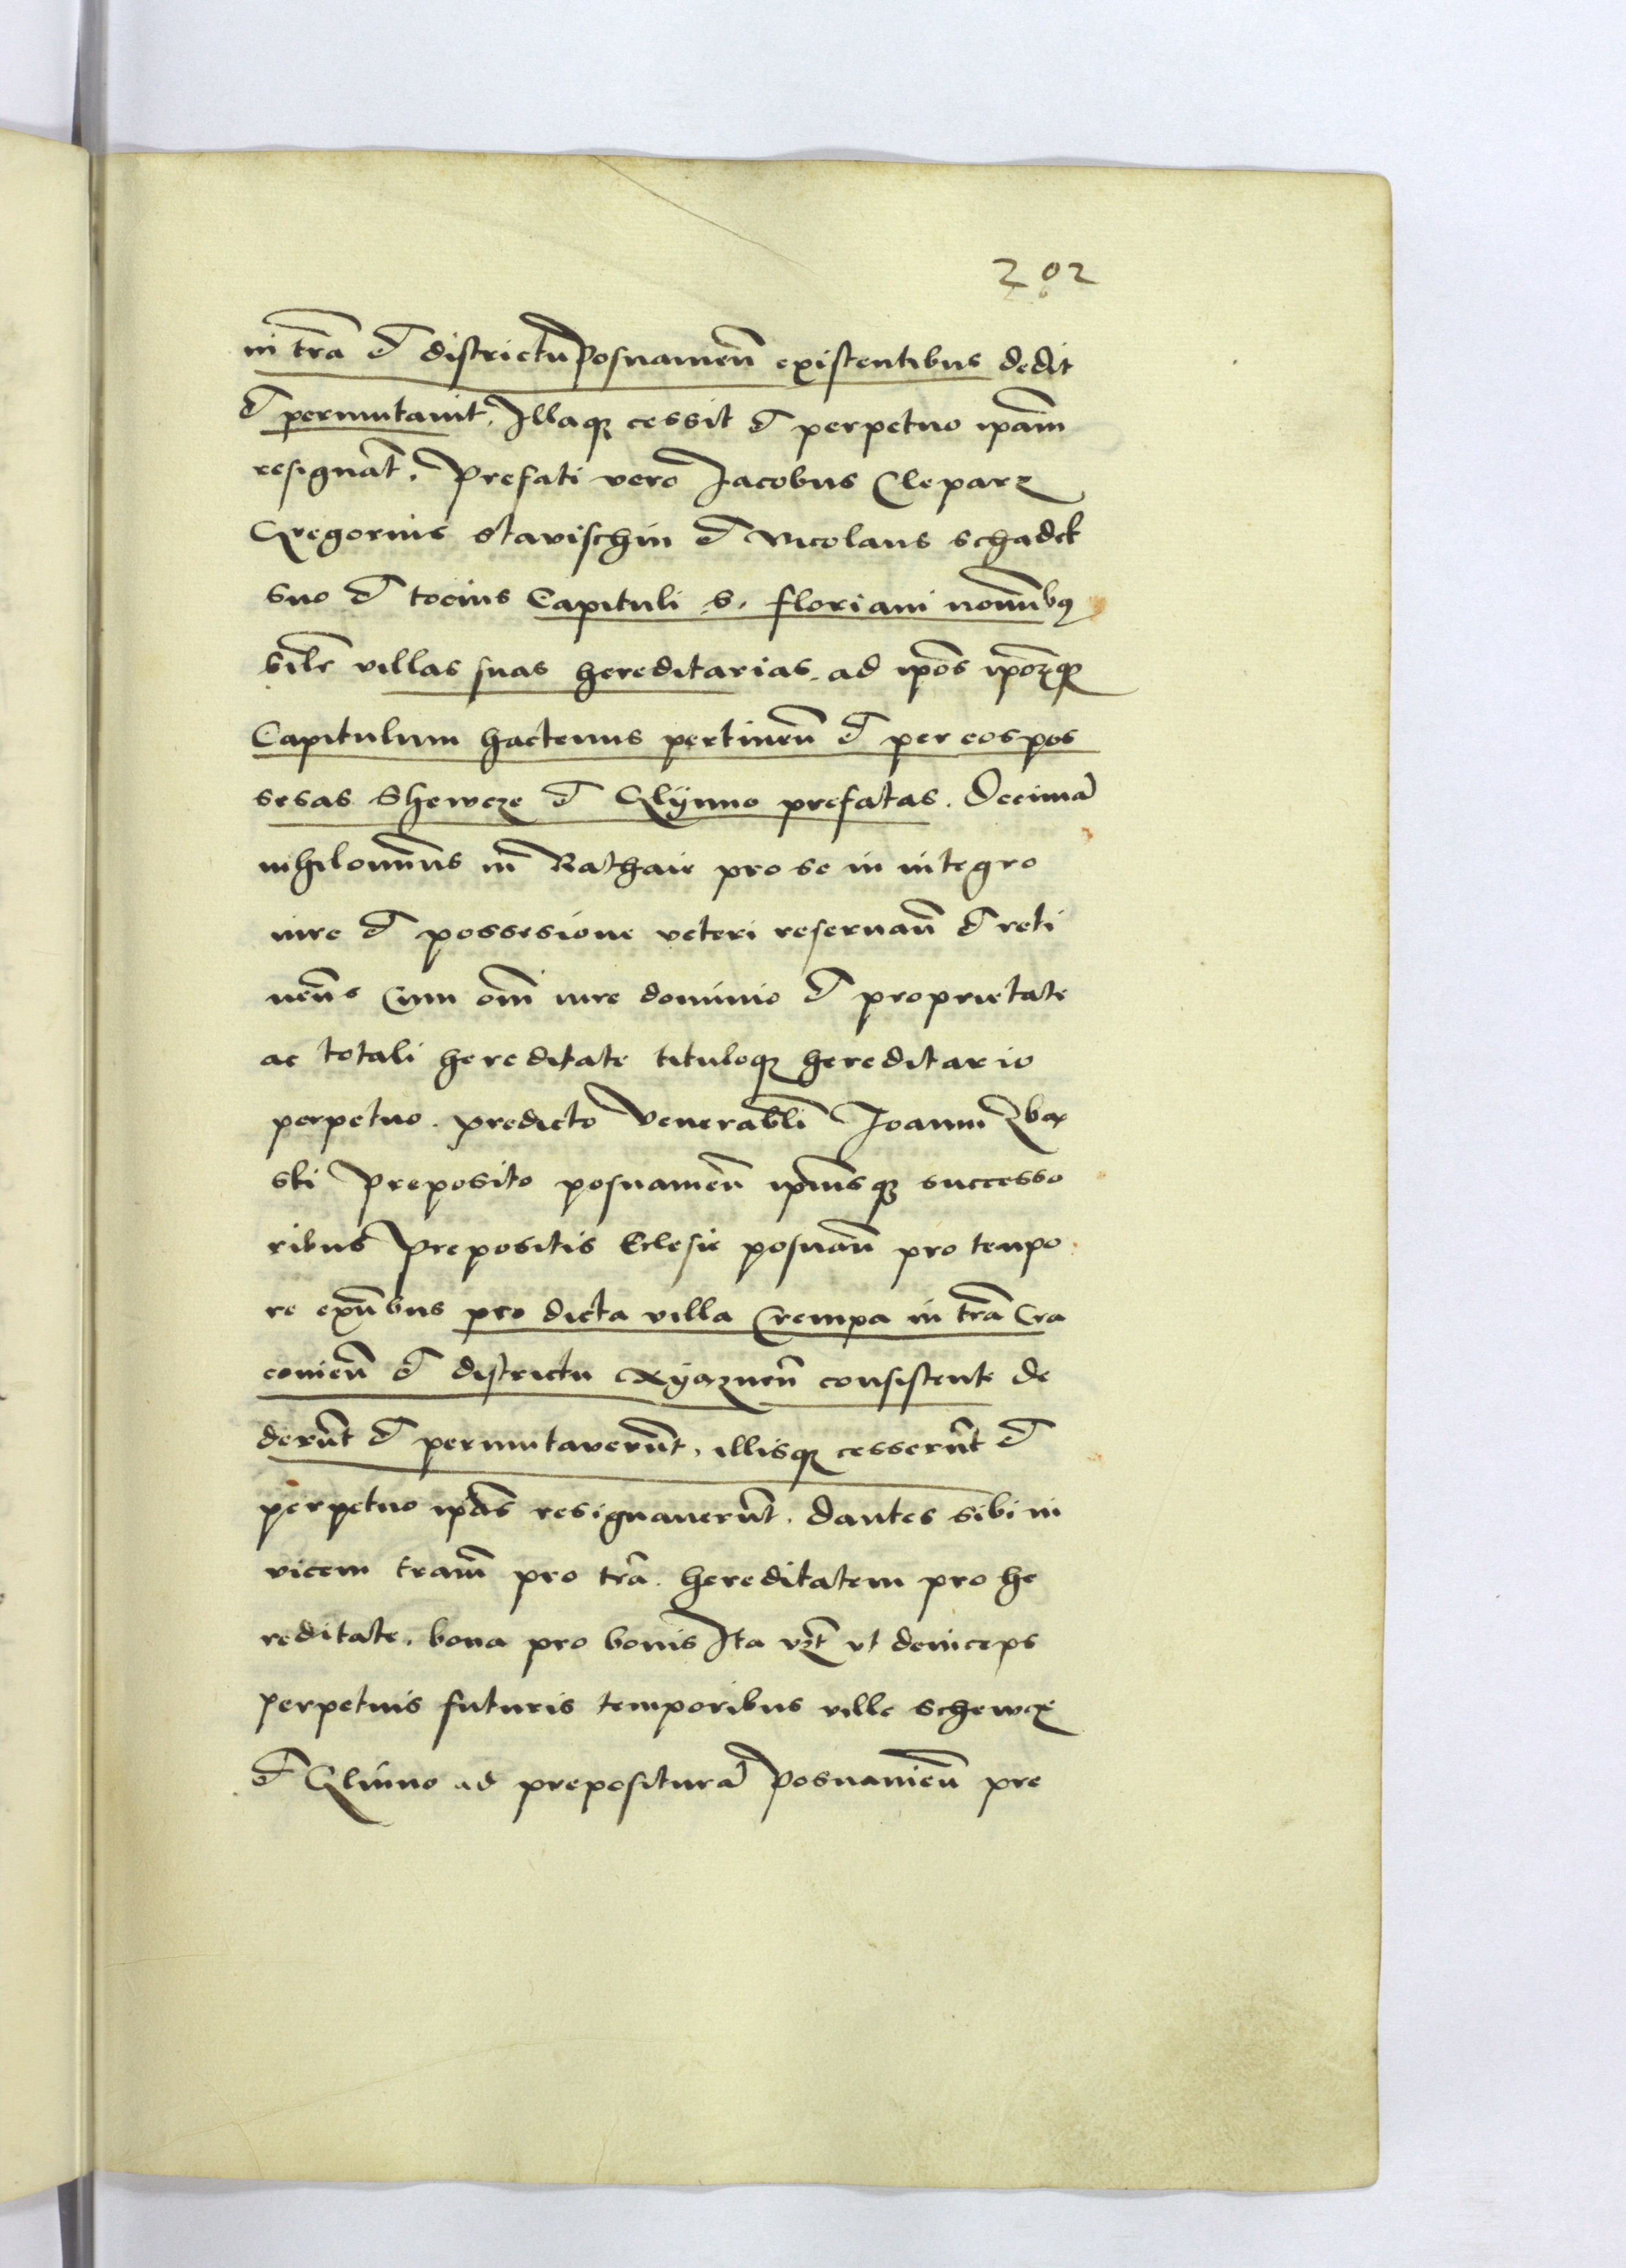 202
in tra͠ et districtu Posnanien͠ existentibus dedit
et permutauit, Illaqȝ cessit et perpetuo ipam͠
resignat͠. Prefati vero Jacobus Cleparz
Gregorius Stavischin et Nicolaus Schadek
suo et tocius Capituli S. floriani nominibꝰ
sil͠r villas suas hereditarias ad ipos͠ ipoꝝ͠qȝ
Capitulum hactenus pertinen͠ et per eos pos
sesas Shewcze et Glÿnno prefatas. Decima͠
nihilominus in Bathair pro se in integro
iure et possesione veteri reseruan͠ et reti
nen͠s Cum om͠i iure dominio et proprietate
ac totali hereditate tituloqȝ hereditario
perpetuo. predicto Venerabli͠ Joanni Zbax
ski Preposito posnanien͠ ipius͠qȝ successo
ribus Prepositis Eclesie posnan͠ pro tenpo
re exn͠bus pro dicta villa Crempa in tra͠ Cra
couien͠ et districtu Xÿaznen͠ consistente de
deru͠t et permutaveru͠t, illisqȝ cesseru͠t et
perpetuo ipas͠ resignaueru͠t. dantes sibi in
vicem tram͠ pro tra͠. hereditatem pro he
reditate, bona pro bonis Ita vzt͠ vt deinceps
perpetuis futuris temporibus ville Schewcze
et Glinno ad prepositura͠ Posnanien͠ pre